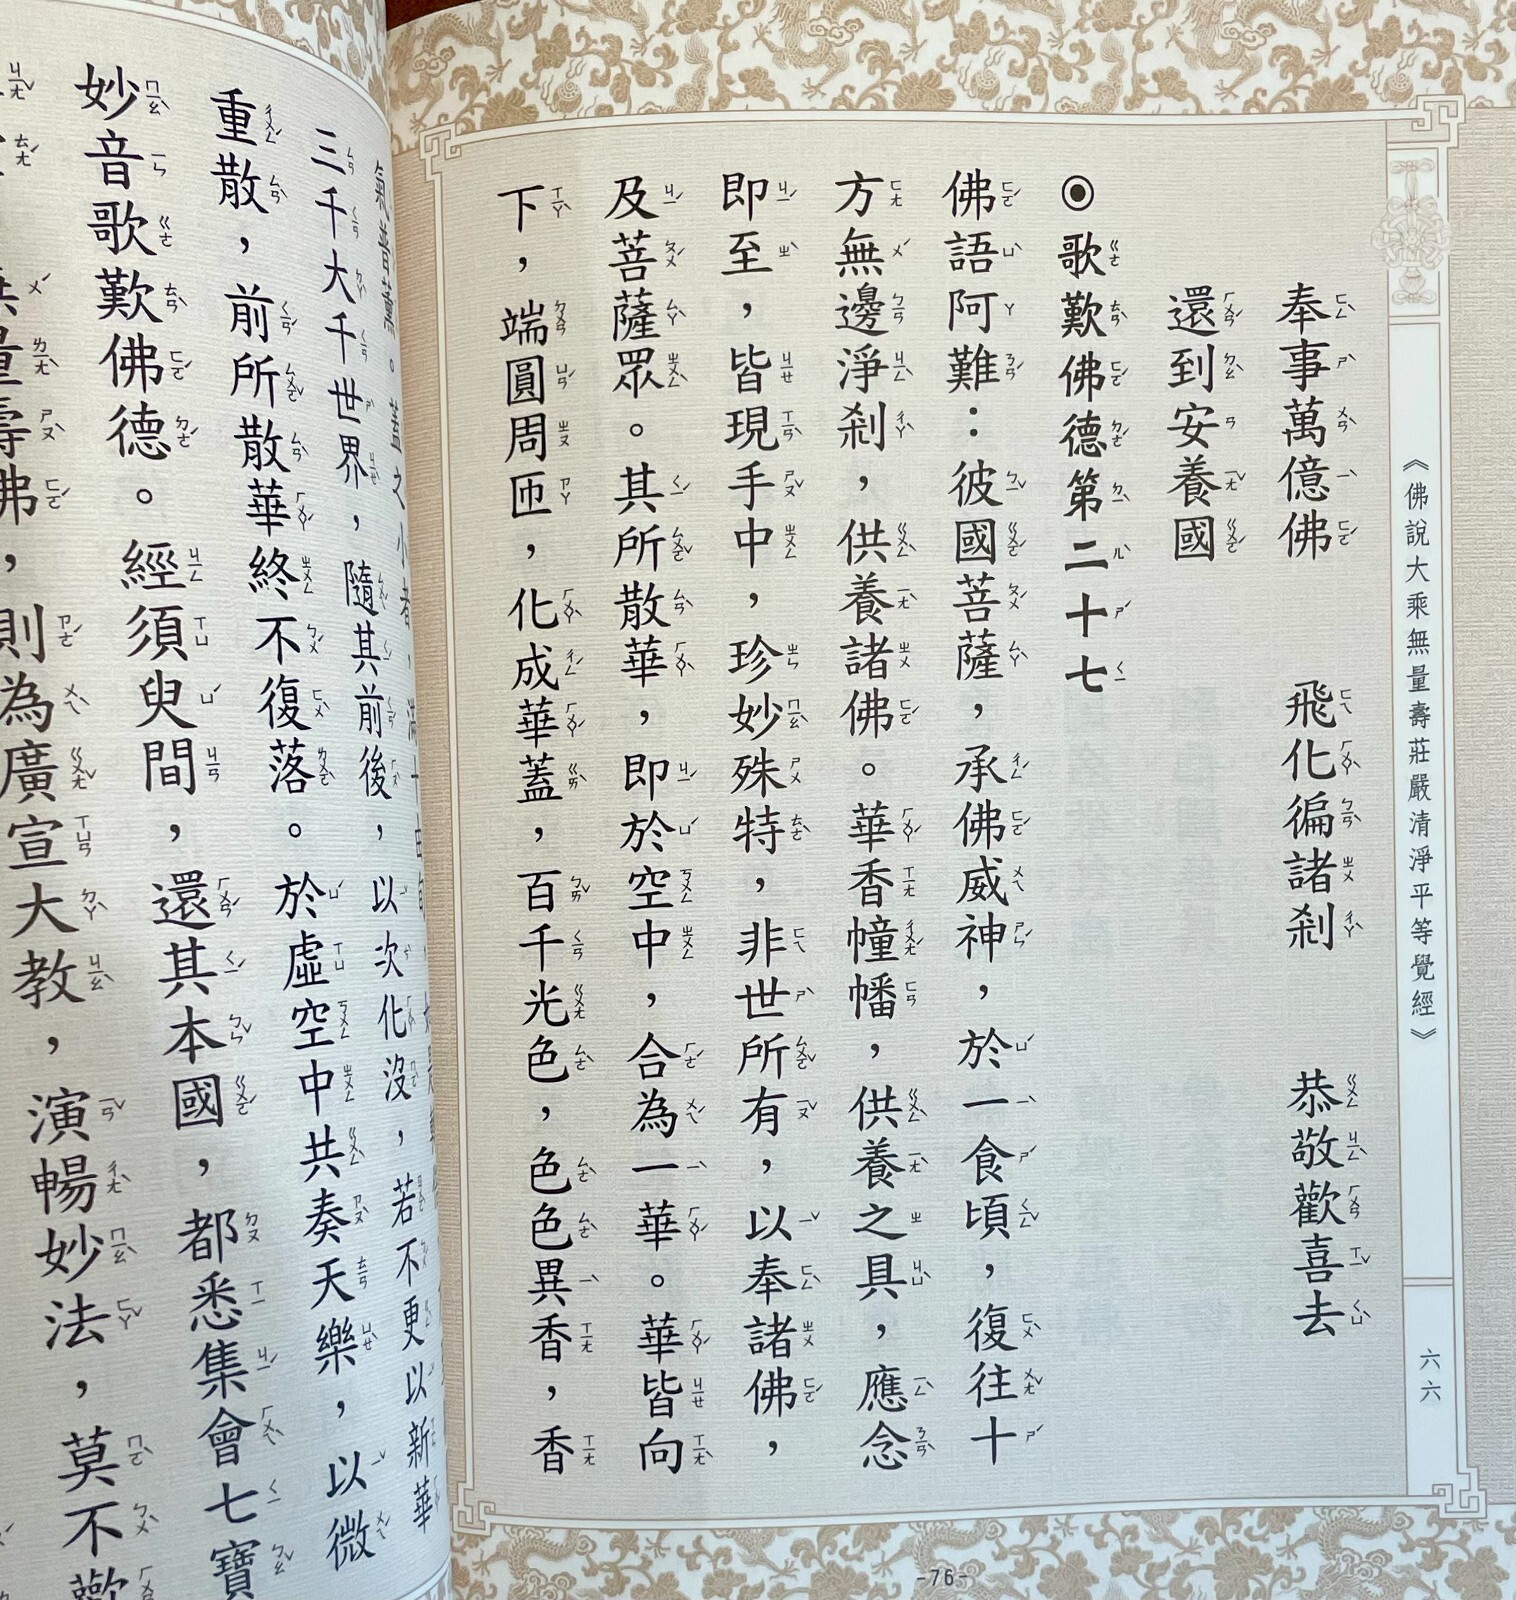 《佛說大乘無量壽莊嚴清淨平等覺經》
六六
奉事萬億佛 飛化徧諸剎 恭敬歡喜去
還到安養國
⦿歌歎佛德第二十七
佛語阿難：彼國菩薩，承佛威神，於一食頃，復往十
方無邊淨剎，供養諸佛。華香幢幡，供養之具，應念
即至，皆現手中，珍妙殊特，非世所有，以奉諸佛，
及菩薩眾。其所散華，即於空中，合為一華。華皆向
下，端圓周匝，化成華蓋，百千光色，色色異香，香
-76-
氣普薰。蓋之小者，滿十由旬，
三千大千世界，隨其前後，以次化沒，若不更以新華
重散，前所散華終不復落。於虛空中共奏天樂，以微
妙音歌歎佛德。經須臾間，還其本國，都悉集會七寶
無量壽佛，則為廣宣大教，演暢妙法，莫不歡